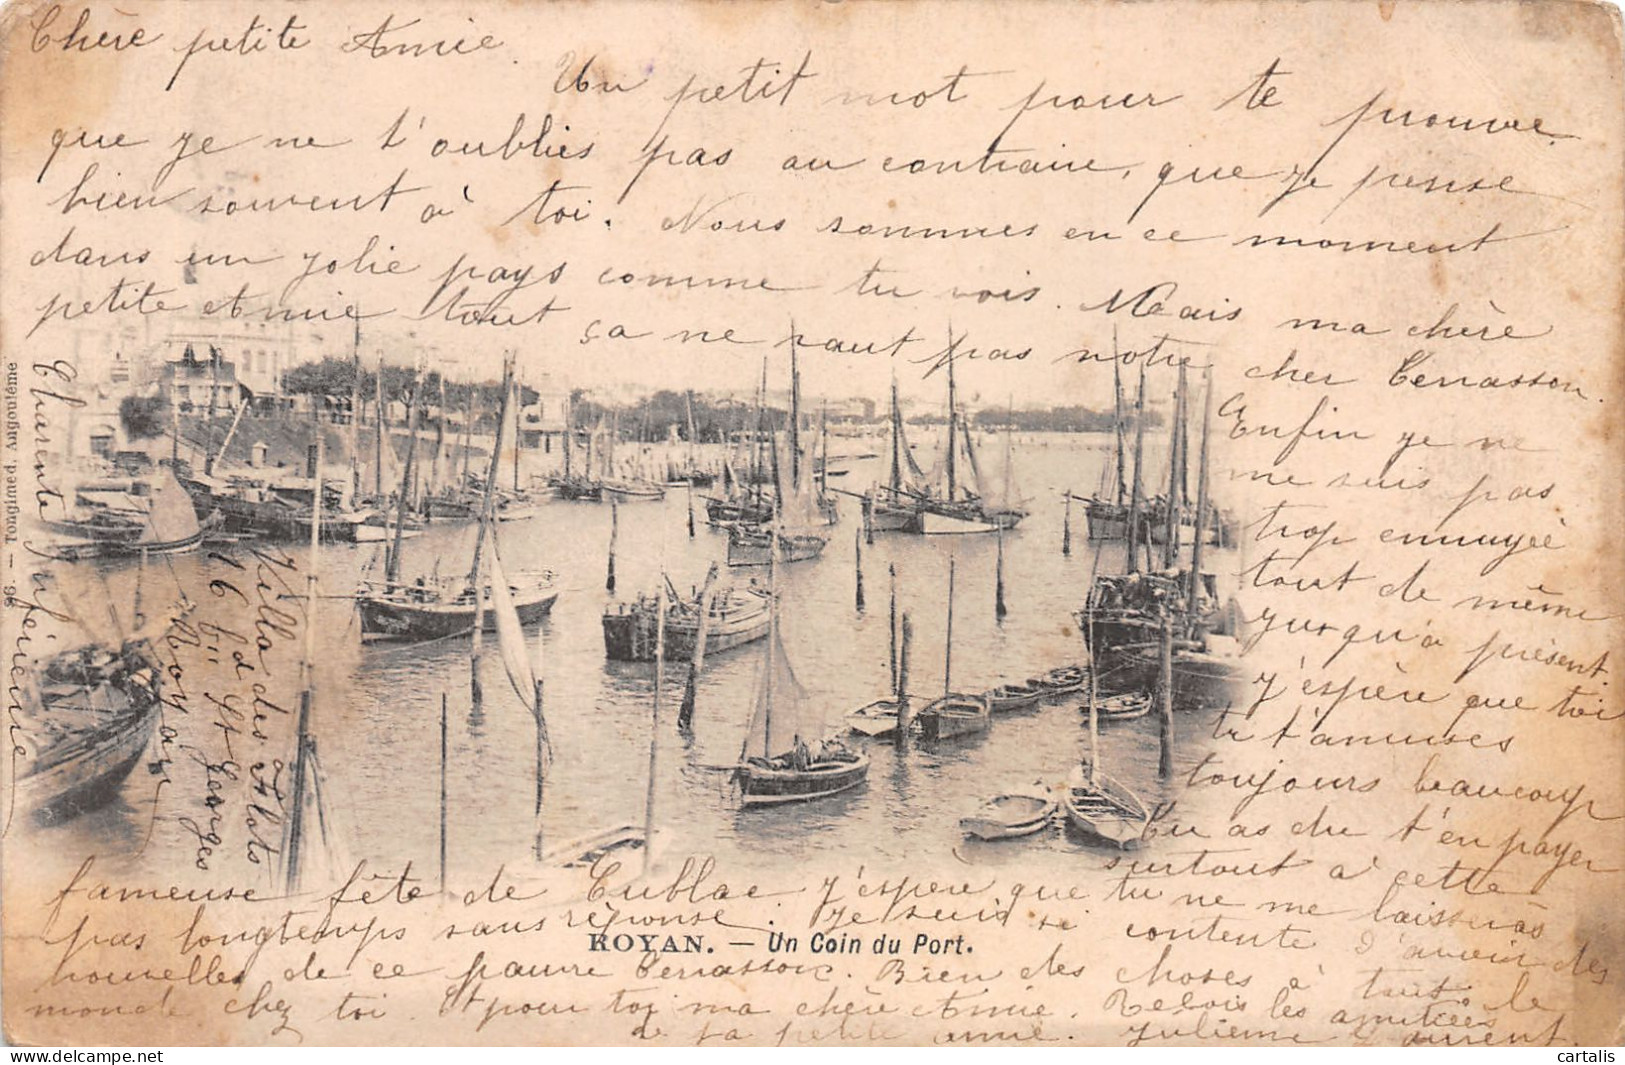 Chère petite Amie.
Un petit mot pour te prouve
que je ne t'oublies pas au contraire, que je pense
bien souvent à toi. Nous sommes en ce moment
dans un jolie pays comme tu vois. Mais ma chère
petite Amie tout ça ne vaut pas notre cher Terrasson.
Enfin je ne
me suis pas
trop ennuyée
tout de même
jusqu'à présent.
j'espère que toi
tu t'amuses
toujours beaucoup
Tu as du t'en payer
surtout à cette
fameuse fête de Cublac. j'espère que tu ne me laisseras
pas longtemps sans réponse. je suis si contente d'avoir des
nouvelles de ce pauvre Terrasson. Bien des choses à tout le
monde chez toi. Et pour toi ma chère Amie. Reçois les amitiées
de ta petite amie. Julienne Laurent.
Villa des Flots
16 bd St Georges
Royan
Charente Inférieure
96. — Tongimed, Angoulême
ROYAN. — Un Coin du Port.
cartalis